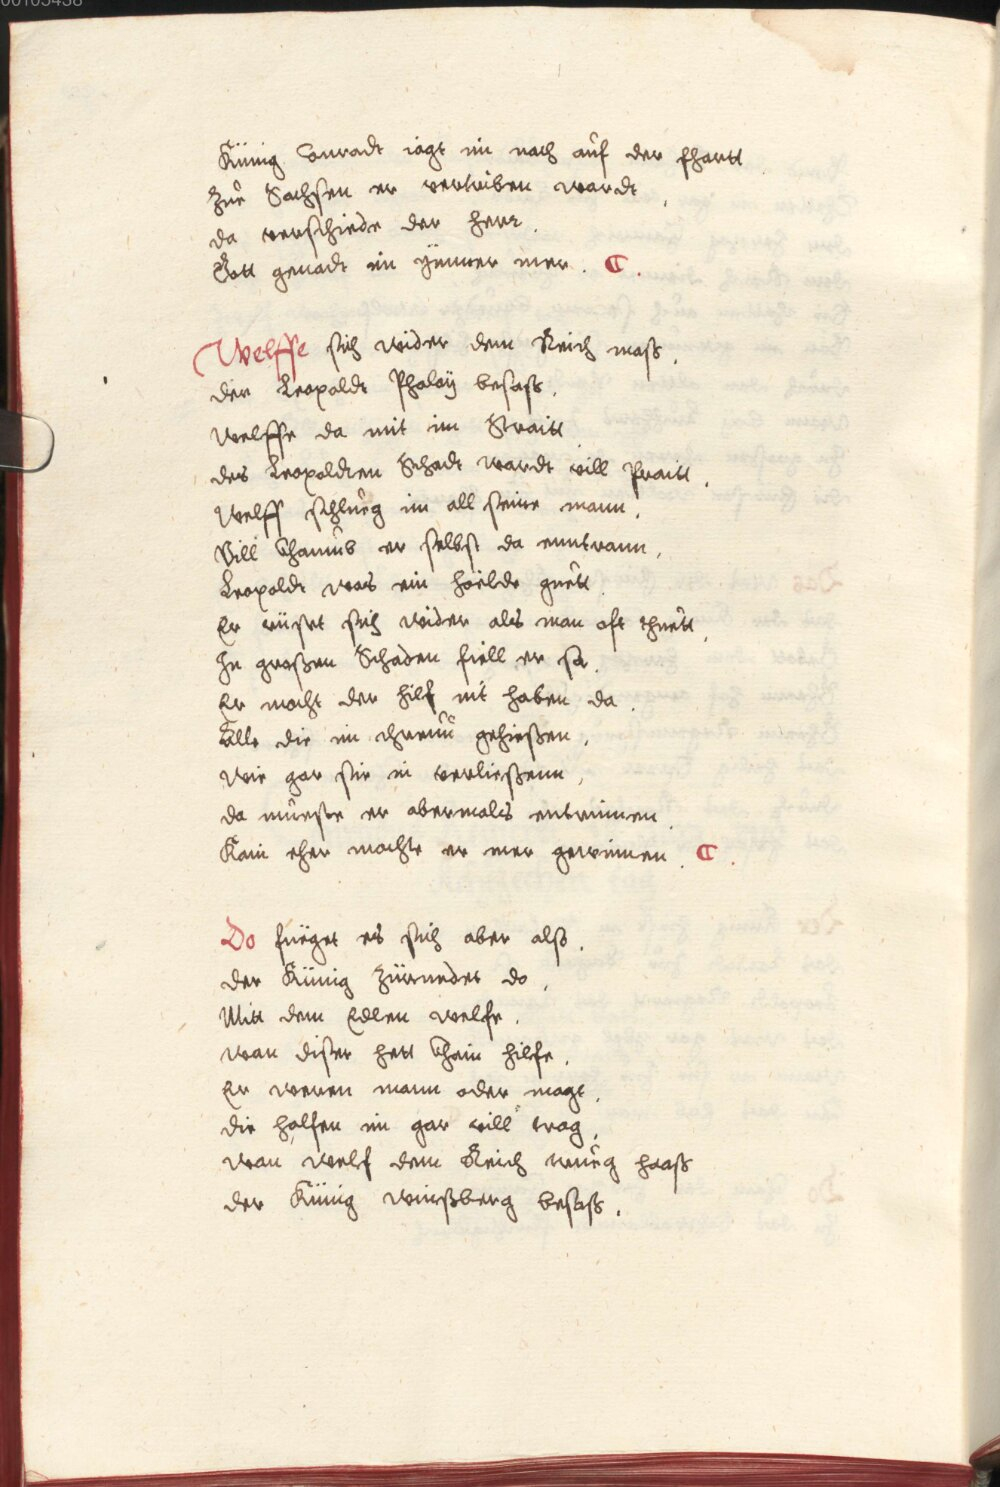 Künig Conradt iagt im nach auf der fhartt
Zue Sachsen er vertriben wardt,
da verschiede der herr.
Gott genadt im ÿmmer mer. C.
Welffe sich wider dem Reich mass,
der Leopoldt Phalaÿ besass.
Welffe da mit im Straitt
des Leopoldten Schadt wardt vill praitt,
Welff schlueg im all seine mann,
Vill khaumb er selbst da enntrann,
Leopoldt was ein hoëlde guett
Er rüsst sich wider als man oft thuett,
In grossen Schaden fiell er sa
Er mocht der hilf nit haben da.
Alle die im threuü gehiessen,
wie gar sie in verliessenn,
da mueste er abermals entrinnen
Kain eher mochte er mer gewinnen. C.
Do fueget es sich aber also,
der Künig zürnedet do,
Mitt dem Edlen welfe.
wan diser hett khain hilfe,
Er weren mann oder magt,
die halfen im gar vill trag,
wan welf dem Reich trueg haass
der Künig winssberg besass.